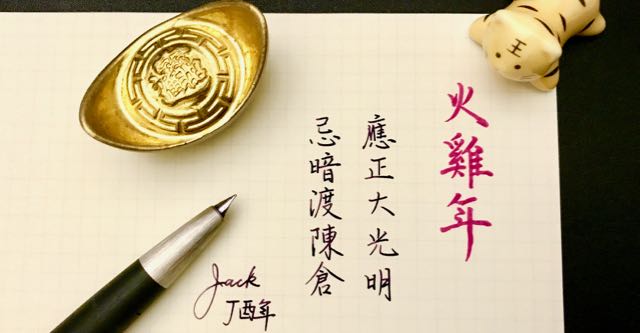 火雞年
應正大光明
忌暗渡陳倉
Jack
丁酉年
王